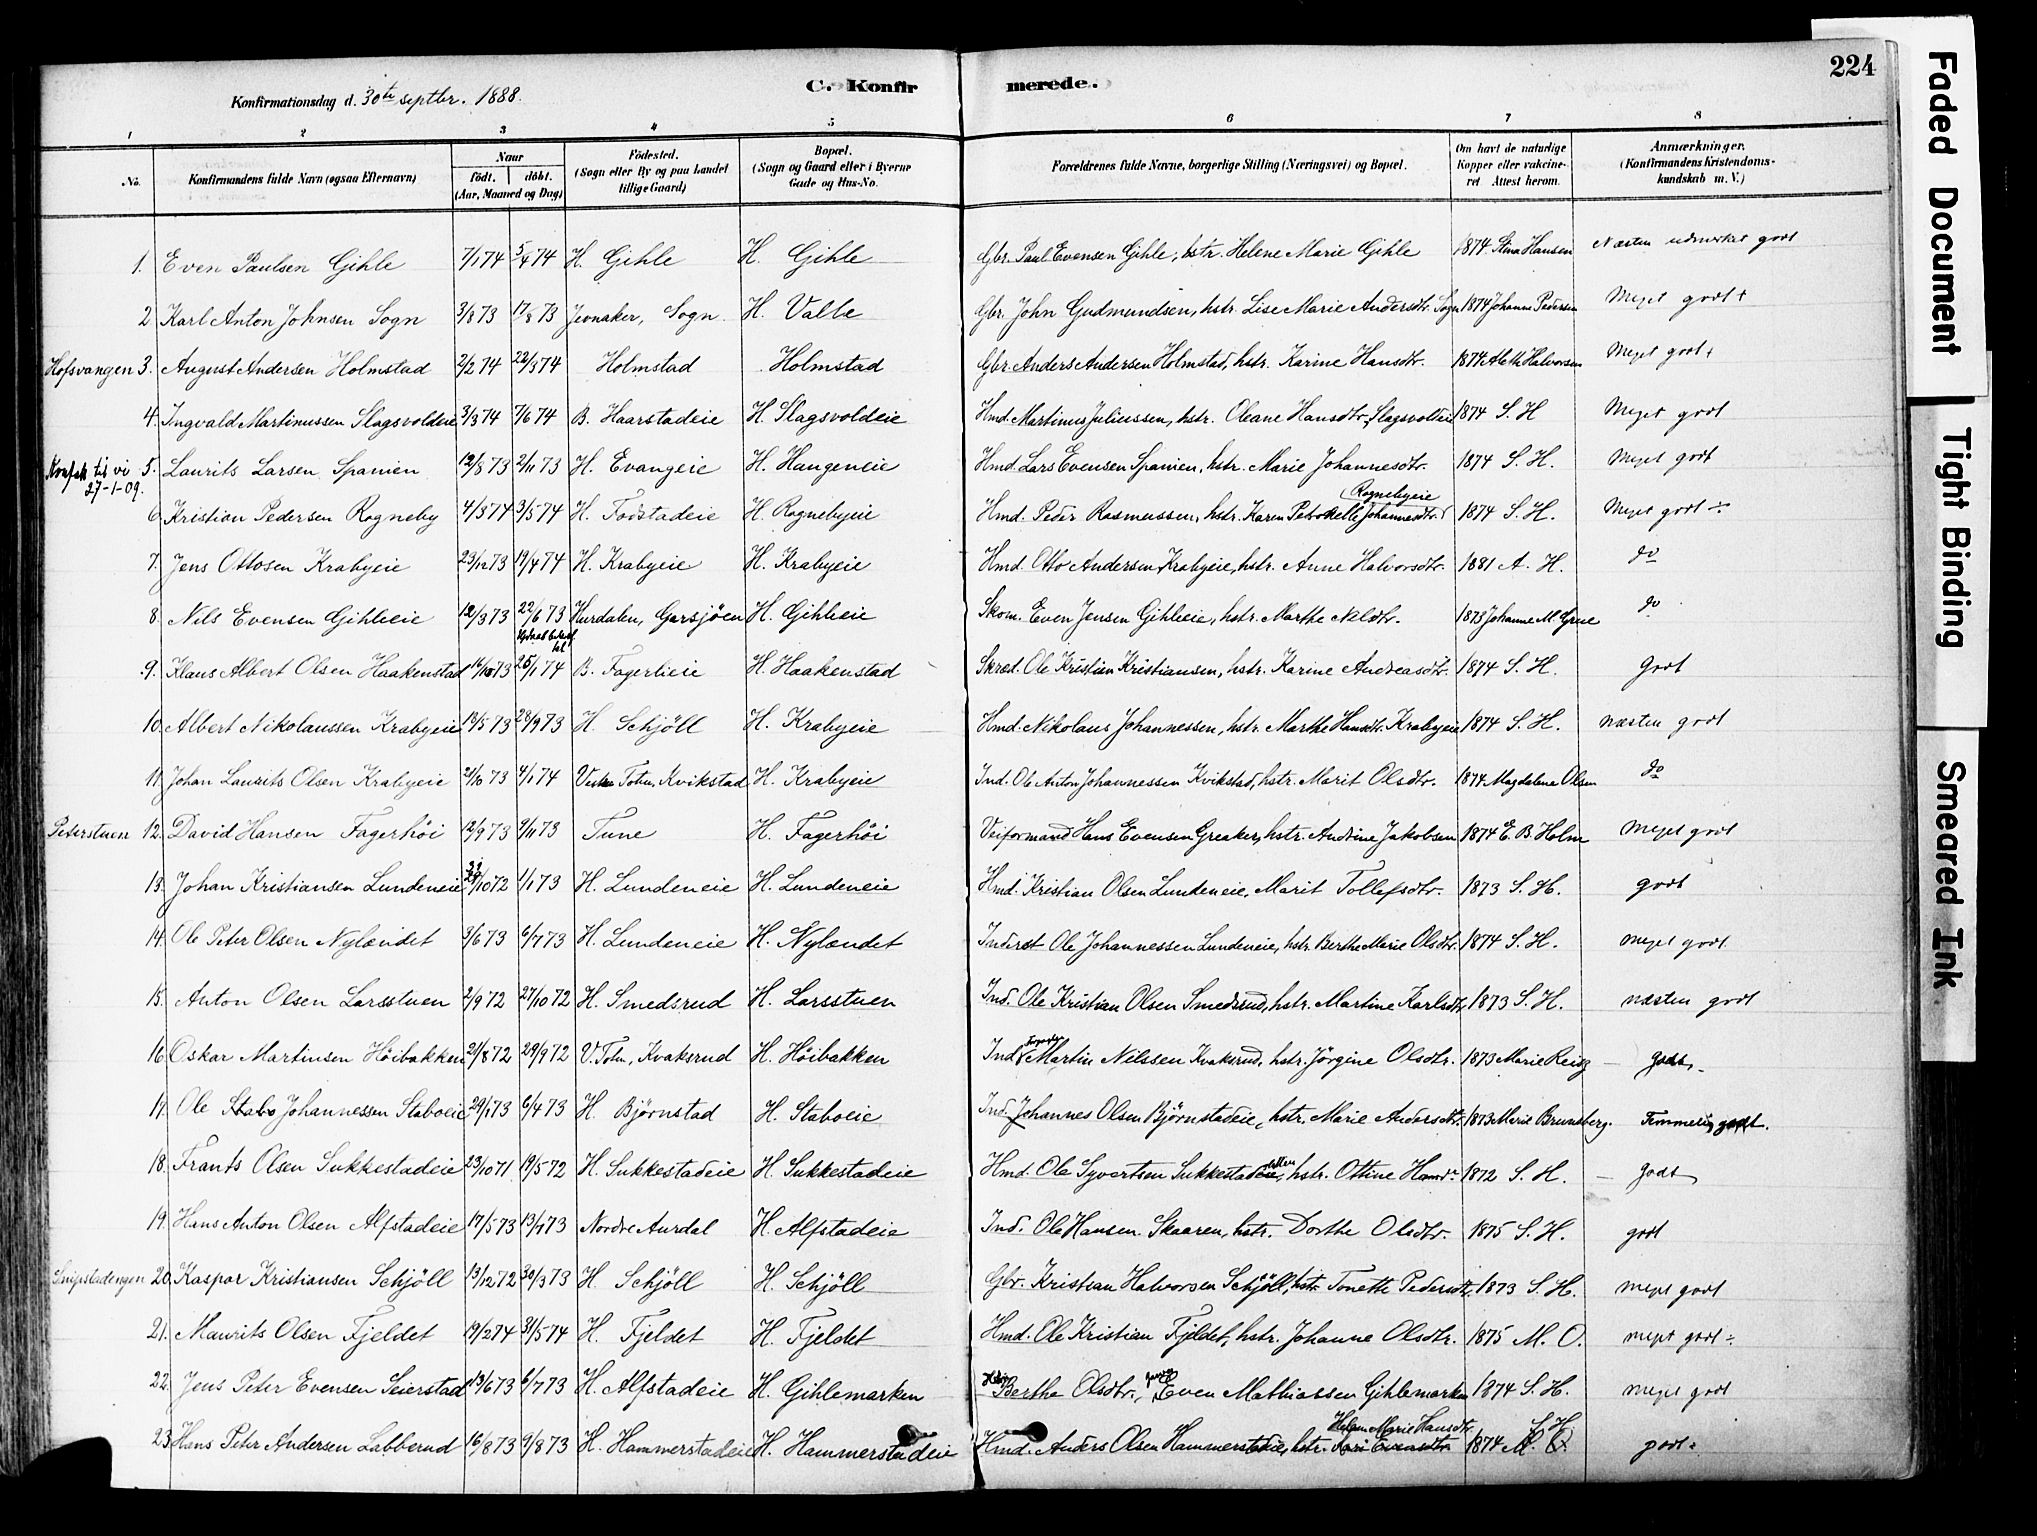 224
C. Konfirmerede.
Konfirmationsdag d. 30te septbr. 1888.
1 2 3 4 5 6 7 8
No. Konfirmandens fulde Navn (ogsaa Efternavn) Naar født. døbt. (Aar, Maaned og Dag) Fødested. (Sogn eller By og paa Landet tillige Gaard) Bopæl. (Sogn og Gaard eller i Byerne Gade og Hus-No. Forældrenes fulde Navne, borgerlige Stilling (Næringsvei) og Bopæl. Om havt de naturlige Kopper eller vaccineret Attest herom. Anmærkninger. (Konfirmandens Kristendomskundskab m. V.)
1. Even Paulsen Gihle 7/1 74 5/4 74 H. Gihle H. Gihle Gbr. Paul Evensen Gihle, hstr. Helene Marie Gihle 1874 Stina Hansen Næsten udmerket godt
2 Karl Anton Johnsen Sogn 3/8 73 17/8 73 Jevnaker, Sogn H. Valle Gbr. John Gudmundsen, hstr. Lise Marie Andersdtr. Sogn 1874 Johanne Pedersen Meget godt +
Hofsvangen 3. August Andersen Holmstad 2/2 74 22/3 74 Holmstad Holmstad Gbr. Anders Andersen Holmstad, hstr. Karine Hansdtr. 1874 Aleth Halvorsen Meget godt +
4. Ingvald Martinussen Slagsvoldeie 3/3 74 7/6 74 B. Haarstadeie H. Slagsvoldeie Hmd. Martinus Juliussen, hstr. Oleane Hansdtr. Slagsvoldeie 1874 S. H Meget godt
27-1-09. 5. Laurits Larsen Spanien 12/8 73 2/11 73 H. Evangeie H. Haugeneie Hmd. Lars Evensen Spanien, hstr. Marie Johannesdtr. 1874 S. H. Meget godt
6 Kristian Pedersen Rogneby 4/3 74 3/5 74 H. Fodstadeie H. Rognebyeie Hmd. Peder Rasmussen, hstr. Karen Petronelle Johannesdtr. (Rognebyeie 1874 S. H. Meget godt ÷
7. Jens Ottosen Krabyeie 23/12 73 19/4 74 H. Krabyeie H. Krabyeie Hmd. Otto Andersen Krabyeie, hstr. Anne Halvorsdtr. 1881 A. H. do
8. Nils Evensen Gihleeie 12/3 73 22/6 73 Hurdalen, Garsjøen H. Gihleeie Skom. Even Jensen Gihleeie, hstr. Marthe Nilsdtr. 1873 Johanne M Grue do
9. Klaus Albert Olsen Haakenstad 16/10 73 25/1 74 B. Fagerlieie H. Haakenstad Skræd. Ole Kristian Kristiansen, hstr. Karine Andreasdtr. 1874 S. H. Godt
10. Albert Nikolaussen Krabyeie 13/5 73 28/9 73 H. Schjöll H. Krabyeie Hmd. Nikolaus Johannessen, hstr. Marthe Hansdtr. Krabyeie 1874 S. H. næsten godt
11 Johan Laurits Olsen Krabyeie 21/10 73 4/1 74 Vestre Toten, Kvikstad H. Krabyeie Ind. Ole Anton Johannessen Kvikstad, hstr. Marit Olsdtr. 1874 Magdalena Olsen do
Peterstuen 12. David Hansen Fagerhöi 12/9 73 9/11 73 Tune H. Fagerhöi Veiformand Hans Evensen Greaker, hstr. Andrine Jakobsen 1874 E. B. Holm Meget godt
13. Johan Kristiansen Lundeneie 23/10 72 1/1 73 H. Lundeneie H. Lundeneie Hmd. Kristian Olsen Lundeneie, Marit Tollefsdtr. 1873 S. H. godt
14. Ole Peter Olsen Nylændet 3/6 73 6/7 73 H. Lundeneie H. Nylændet Inderst Ole Johannessen Lundeneie, hstr. Berthe Marie Olsdtr. 1874 S. H. Meget godt
15. Anton Olsen Larsstuen 2/9 72 27/10 72 H. Smedsrud H. Larsstuen Ind. Ole Kristian Olsen Smedsrud, hstr. Martine Karlsdtr. 1873 S. H. næsten godt
16 Oskar Martinsen Höibakken 21/8 72 29/9 72 V. Totn, Kvaksrud H. Höibakken Ind. Martin Nilssen Kvaksrud, hstr. Jörgine Olsdtr. 1873 Marie Reisz godt
17. Ole Stabo Johannessen Staboeie 29/1 73 6/4 73 H. Bjørnstad H. Staboeie Ind. Johannes Olsen Bjørnstadeie, hstr. Marie Andersdtr. 1873 Marie Brunsberg. Temmelig godt.
18. Frants Olsen Sukkestadeie 23/10 71 19/5 72 H. Sukkestadeie H. Sukkestadeie Hmd. Ole Syvertsen Sukkestadeie, hstr. Ottine Hansd. 1872 S. H. Godt
19. Hans Anton Olsen Alfstadeie 17/5 73 13/7 73 Nordre Aurdal H. Alfstadeie Ind. Ole Hansen Skaaren, hstr. Dorthe Olsdtr. 1875 S. H. godt
Snipstadengen 20. Kaspar Kristiansen Schjöll 13/12 72 30/3 73 H. Schjöll H. Schjöll Gbr. Kristian Halvorsen Schjöll, hstr. Tonette Pedersdtr. 1873 S. H. Meget godt
21. Maurits Olsen Fjeldet 19/2 74 31/5 74 H. Fjeldet H. Fjeldet Hmd. Ole Kristian Fjeldet, hstr. Johanne Olsdtr. 1875 M. O. meget godt ÷
22. Jens Peter Evensen Seierstad 13/6 73 6/7 73 H. Alfstadeie H. Gihlemarken Berthe Olsdtr., Even Mathiassen Gihlemarken 1874 S. H. Meget godt
23. Hans Peter Andersen Labberud 16/8 73 9/8 73 H. Hammerstadeie H. Hammerstadeie Hmd. Anders Olsen Hammerstadeie, hstr. Kari Evensdtr. Helene Marie Hansdtr. 1874 S. H. godt ÷
Faded Document
Tight Binding
Smeared Ink